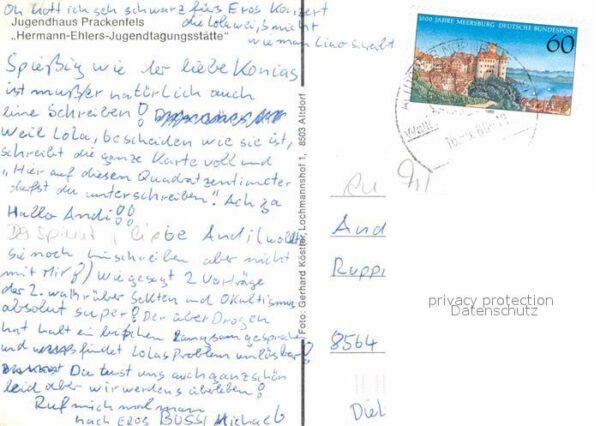 Oh Gott ich geh schwarz fürs Eros Konzert
die lola weiß nicht
wie man Ciao schreibt
Jugendhaus Prackenfels
„Hermann-Ehlers-Jugendtagungsstätte"
Spießig wie der liebe Konias
ist muß er natürlich auch
eine Schreiben!
Weil Lola, bescheiden wie sie ist,
schreibt die ganze Karte voll und
„Hier auf diesen Quadratzentimeter
darfst du unterschreiben". Ach ja
Hallo Andi!
Der Spinnt, liebe Andi (wollte
sie noch hinschreiben aber nicht
mit Mir!) Wie gesagt 2 Vorträge
der 2. wahr über Sekten und Okultismus
absolut super! Der über Drogen
hat halt ein bißchen langsam gesprochen
und findet Lolas Problem unlösbar!
Du tust uns auch ganz schön
leid aber wir werdens überleben!
Ruf mich mal mann
nach EROS BUSSI Michael
Foto: Gerhard Köstler, Lochmannshof 1, 8503 Altdorf
1000 JAHRE MEERSBURG DEUTSCHE BUNDESPOST
60
And
Ruppr
8564
Dieh
privacy protection
Datenschutz